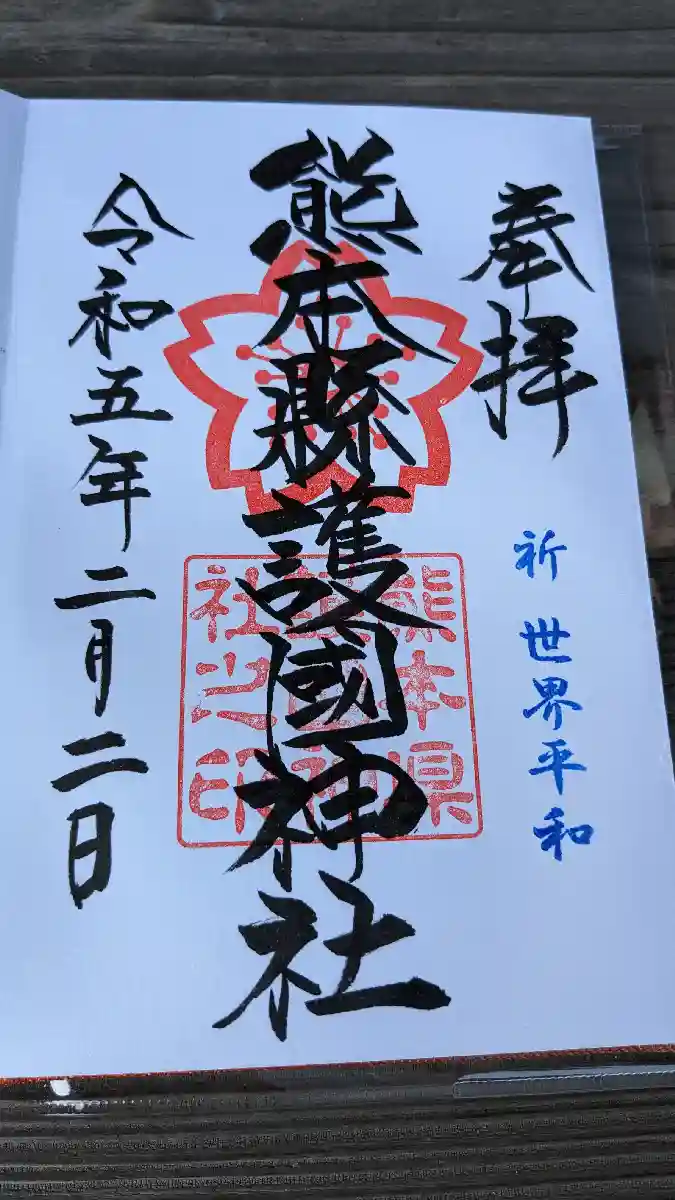 奉拝
祈 世界平和
熊本縣護國神社
熊本県護国神社之印
令和五年二月二日